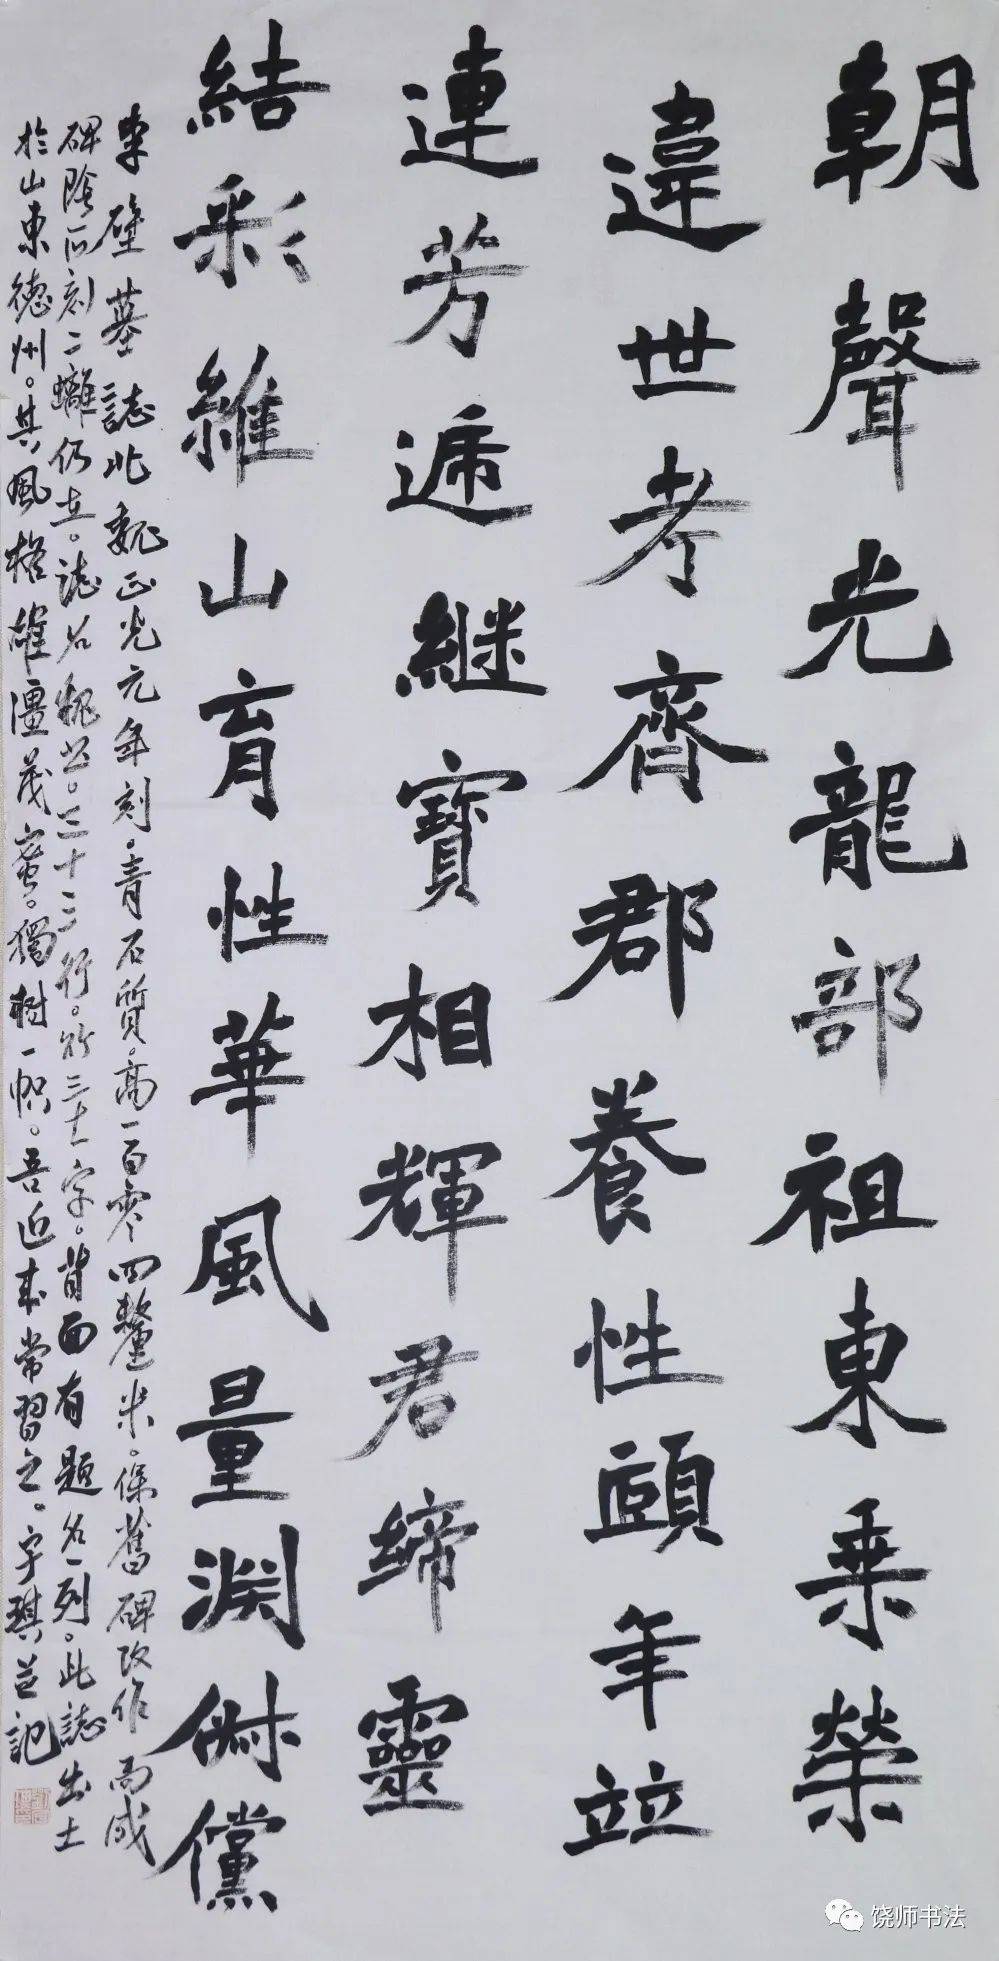 朝聲光龍部祖東乗榮
違世考齊郡養性頤年竝
連芳遞継寶相輝君締靈
結彩維山育性華風量淵俶儻
李璧墓誌北魏正光元年刻。青石質。高一百零四釐米。係舊碑改作而成
碑陰所刻二螭仍在。誌石魏書。三十三行。行三十一字。背面有題名一列。此誌出土
於山東德州。其風格雄彊茂密。獨樹一幟。吾近来常習之。宇琪並記
饶师书法